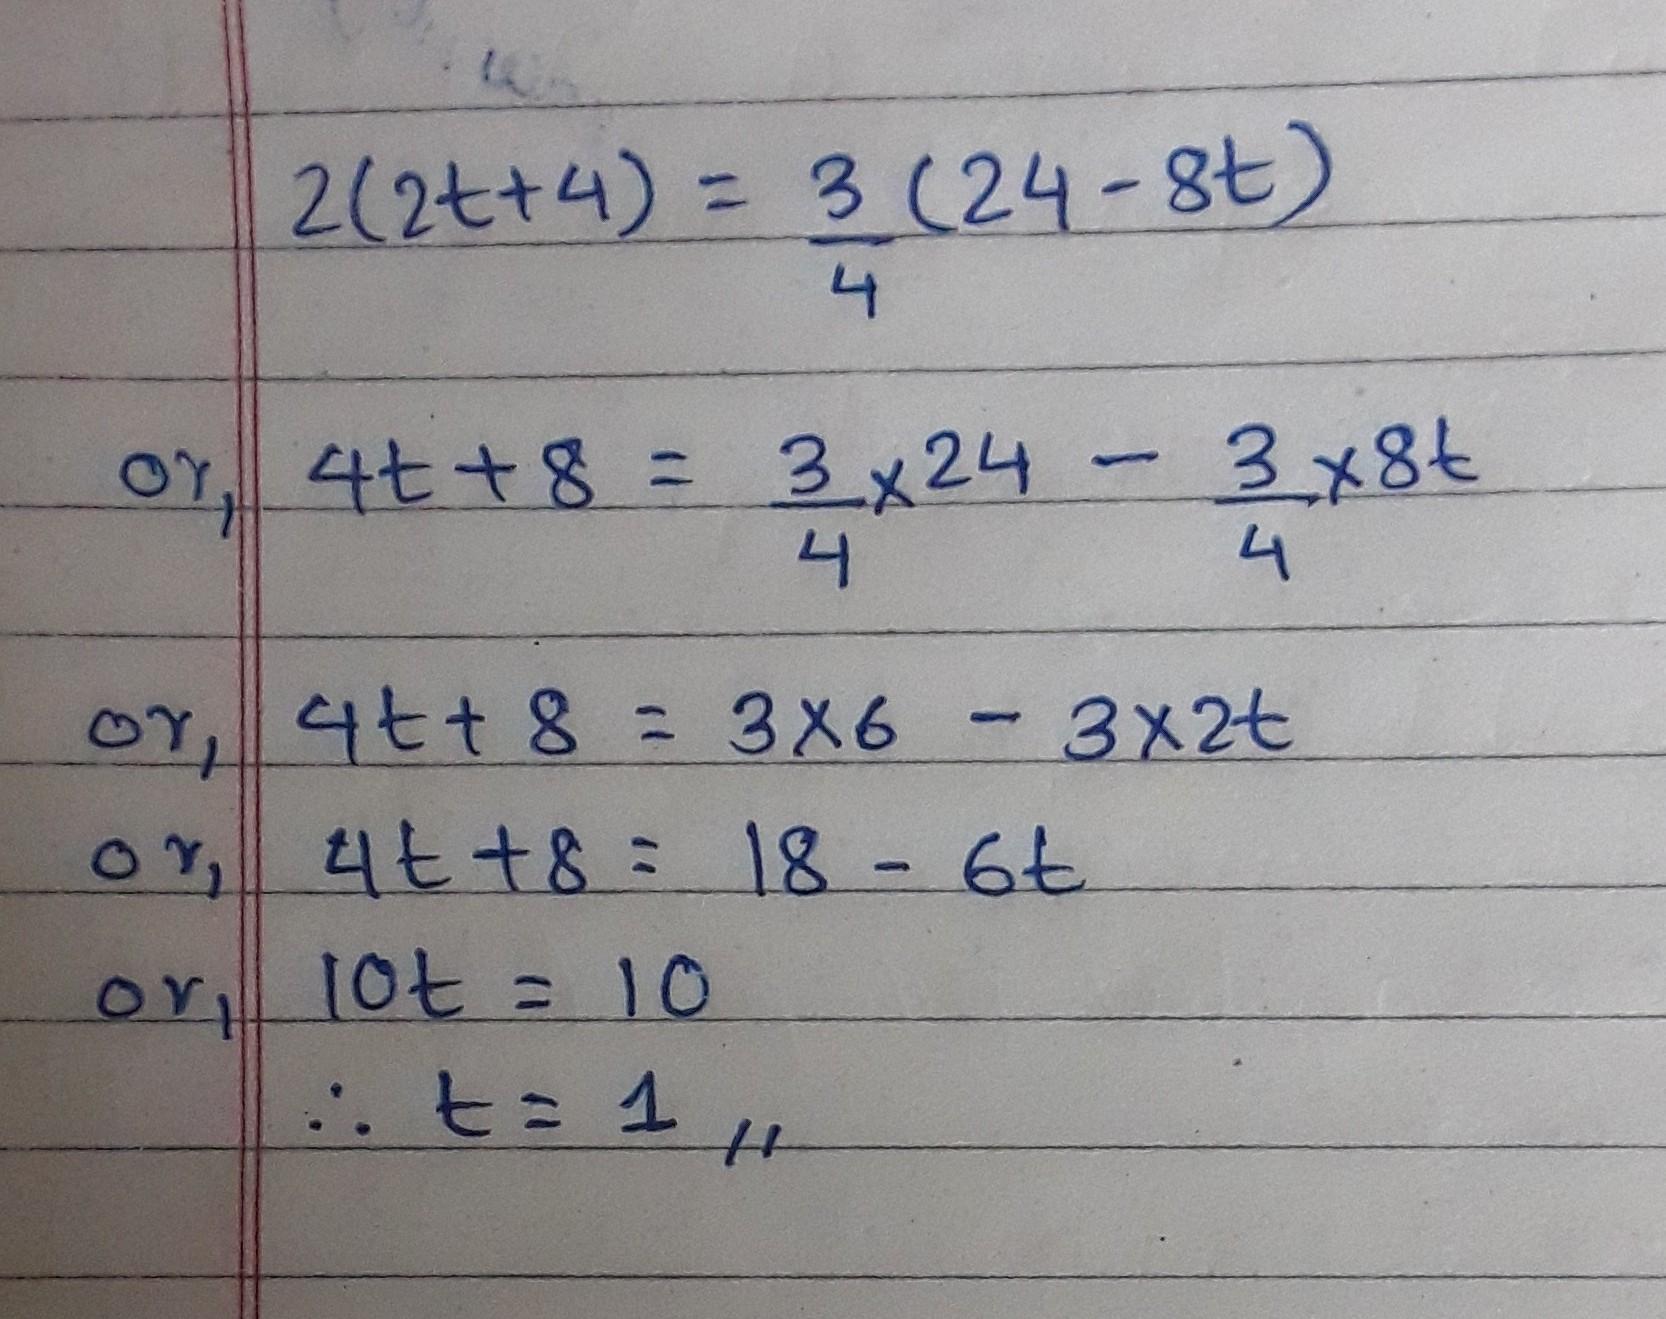 2(2t+4) = 3/4 (24-8t)
or, 4t+8 = 3/4 ×24 - 3/4 ×8t
or, 4t+8 = 3×6 - 3×2t
or, 4t+8 = 18 - 6t
or, 10t = 10
∴ t = 1 ,,